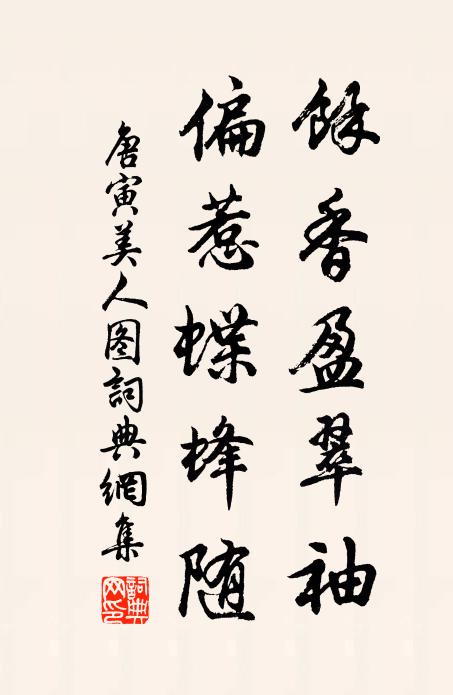 餘香盈翠袖
偏惹蝶蜂随
唐寅美人图詞典網集
詞典网印